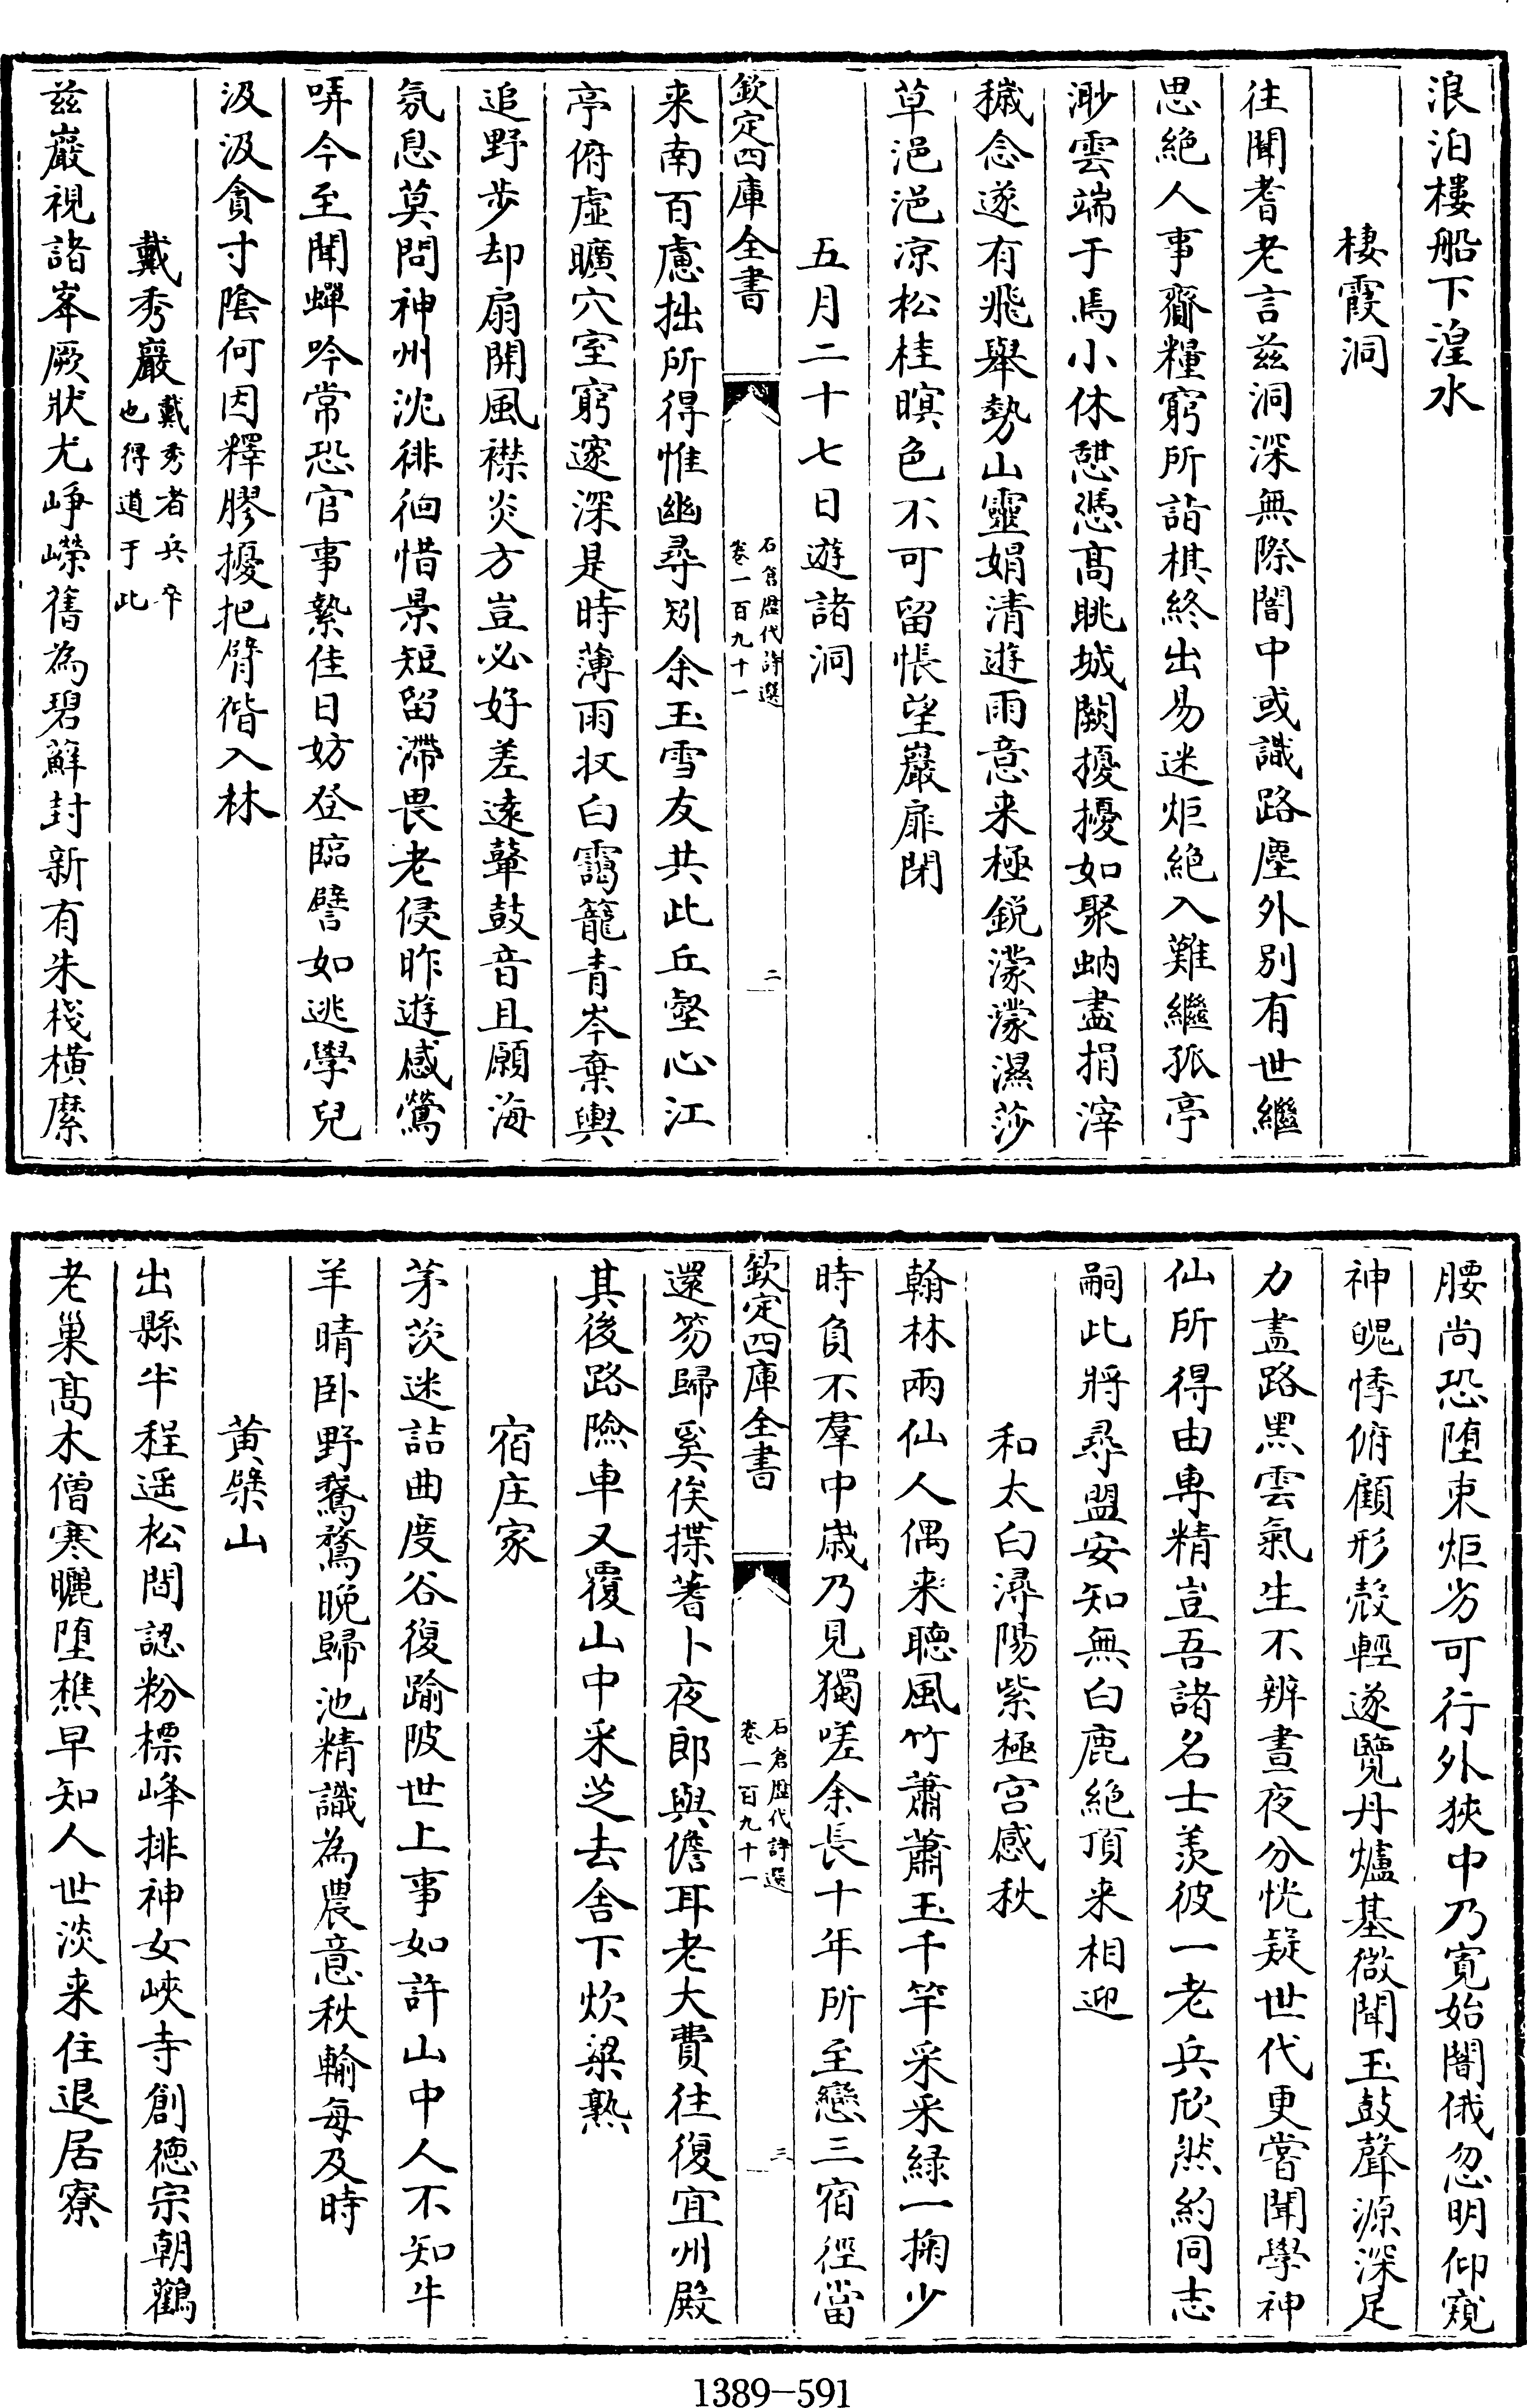 浪泊樓船下湟水
棲霞洞
往聞耆老言茲洞深無際闇中或識路塵外別有世繼
思絶人事齎糧窮所詣棋終出易迷炬絶入難繼孤亭
渺雲端于焉小休憇憑髙眺城闕擾擾如聚蚋盡捐滓
穢念遂有飛舉勢山靈娟清遊雨意来極鋭濛濛濕莎
草浥浥凉松桂暝色不可留悵望巖扉閉
五月二十七日遊諸洞
欽定四庫全書
石倉歴代詩選
卷一百九十一
二
来南百慮拙所得惟幽尋矧余玉雪友共此丘壑心江
亭俯虛曠穴室窮邃深是時薄雨收白靄籠青岑棄輿
追野步却扇開風襟炎方豈必好差逺鼙鼓音且願海
氛息莫問神州沈徘徊惜景短留滯畏老侵昨遊感鶯
哢今至聞蟬吟常恐官事縶佳日妨登臨譬如逃學兒
汲汲貪寸陰何因釋膠擾把臂偕入林
戴秀巖戴秀者兵卒
也得道于此
茲巖視諸峯厥狀尤崢嶸舊為碧蘚封新有朱棧橫縻
腰尚恐墮束炬劣可行外狹中乃寛始闇俄忽明仰窺
神魄悸俯顧形殻輕遂覽丹爐基微聞玉鼓聲源深足
力盡路黑雲氣生不辨晝夜分恍疑世代更嘗聞學神
仙所得由専精豈吾諸名士羡彼一老兵欣然約同志
嗣此將尋盟安知無白鹿絶頂来相迎
和太白潯陽紫極宫感秋
翰林兩仙人偶来聴風竹蕭蕭玉千竿采采緑一掬少
時負不羣中歳乃見獨嗟余長十年所至戀三宿徑當
欽定四庫全書
石倉歴代詩選
卷一百九十一
三
還笏歸奚俟揲蓍卜夜郎與儋耳老大費往復宜州殿
其後路險車又覆山中采芝去舍下炊粱熟
宿庄家
茅茨迷詰曲度谷復踰陂世上事如許山中人不知牛
羊晴卧野鵞鶩晚歸池精識為農意秋輸每及時
黄檗山
出縣半程遥松間認粉標峰排神女峽寺創德宗朝鸛
老巢髙木僧寒曬堕樵早知人世淡来住退居寮
1389-591